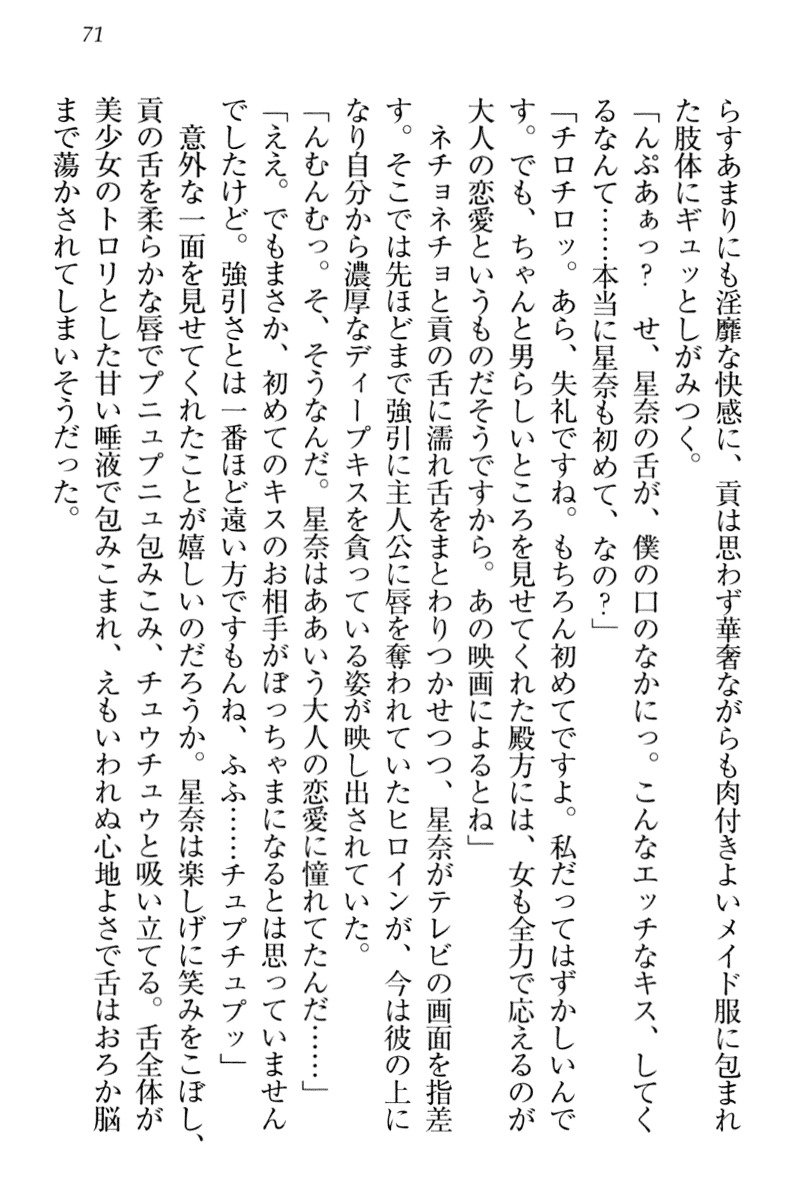 71
らすあまりにも淫靡な快感に、貢は思わず華奢ながらも肉付きよいメイド服に包まれ
た肢体にギュッとしがみつく。
「んぷあぁっ?　せ、星奈の舌が、僕の口のなかにっ。こんなエッチなキス、してく
るなんて……本当に星奈も初めて、なの?」
「チロチロッ。あら、失礼ですね。もちろん初めてですよ。私だってはずかしいんで
す。でも、ちゃんと男らしいところを見せてくれた殿方には、女も全力で応えるのが
大人の恋愛というものだそうですから。あの映画によるとね」
　ネチョネチョと貢の舌に濡れ舌をまとわりつかせつつ、星奈がテレビの画面を指差
す。そこでは先ほどまで強引に主人公に唇を奪われていたヒロインが、今は彼の上に
なり自分から濃厚なディープキスを貪っている姿が映し出されていた。
「んむんむっ。そ、そうなんだ。星奈はああいう大人の恋愛に憧れてたんだ……」
「ええ。でもまさか、初めてのキスのお相手がぼっちゃまになるとは思っていません
でしたけど。強引さとは一番ほど遠い方ですもんね、ふふ……チュプチュプッ」
　意外な一面を見せてくれたことが嬉しいのだろうか。星奈は楽しげに笑みをこぼし、
貢の舌を柔らかな唇でプニュプニュ包みこみ、チュウチュウと吸い立てる。舌全体が
美少女のトロリとした甘い唾液で包みこまれ、えもいわれぬ心地よさで舌はおろか脳
まで蕩かされてしまいそうだった。